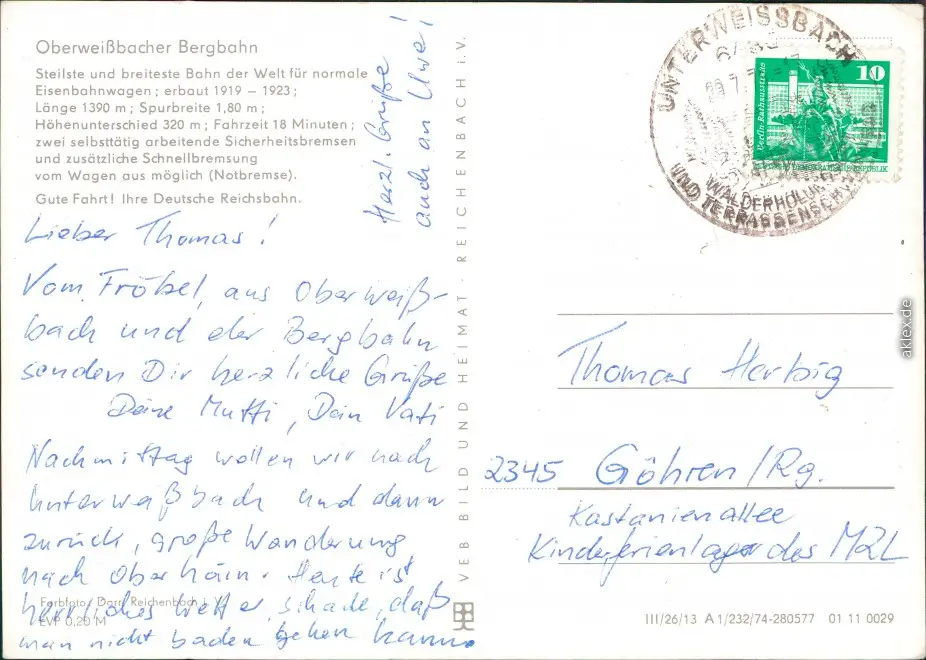 Oberweißbacher Bergbahn
Steilste und breiteste Bahn der Welt für normale
Eisenbahnwagen; erbaut 1919 – 1923;
Länge 1390 m; Spurbreite 1,80 m;
Höhenunterschied 320 m; Fahrzeit 18 Minuten;
zwei selbsttätig arbeitende Sicherheitsbremsen
und zusätzliche Schnellbremsung
vom Wagen aus möglich (Notbremse).
Gute Fahrt! Ihre Deutsche Reichsbahn.
Herzl. Grüße
auch an Uwe!
Lieber Thomas!
Vom Fröbel, aus Oberweiß-
bach und der Bergbahn
senden Dir herzliche Grüße
Deine Mutti, Dein Vati
Nachmittag wollen wir nach
Unterweißbach und dann
zurück, große Wanderung
nach Oberhain. Heute ist
herrliches Wetter, schade, daß
man nicht baden gehen kann.
Farbfoto: Darr, Reichenbach i. V.
EVP 0,20 M
VEB BILD UND HEIMAT · REICHENBACH i. V.
UNTERWEISSBACH
WALDERHOLUNG
UND TERRASSENSCHW
10
Berlin-Rathausstraße
DEUTSCHE DEMOKRATISCHE REPUBLIK
Thomas Herbig
2345 Göhren/Rg.
Kastanienallee
Kinderferienlager des MZL
III/26/13 A 1/232/74-280577 01 11 0029
aklex.de